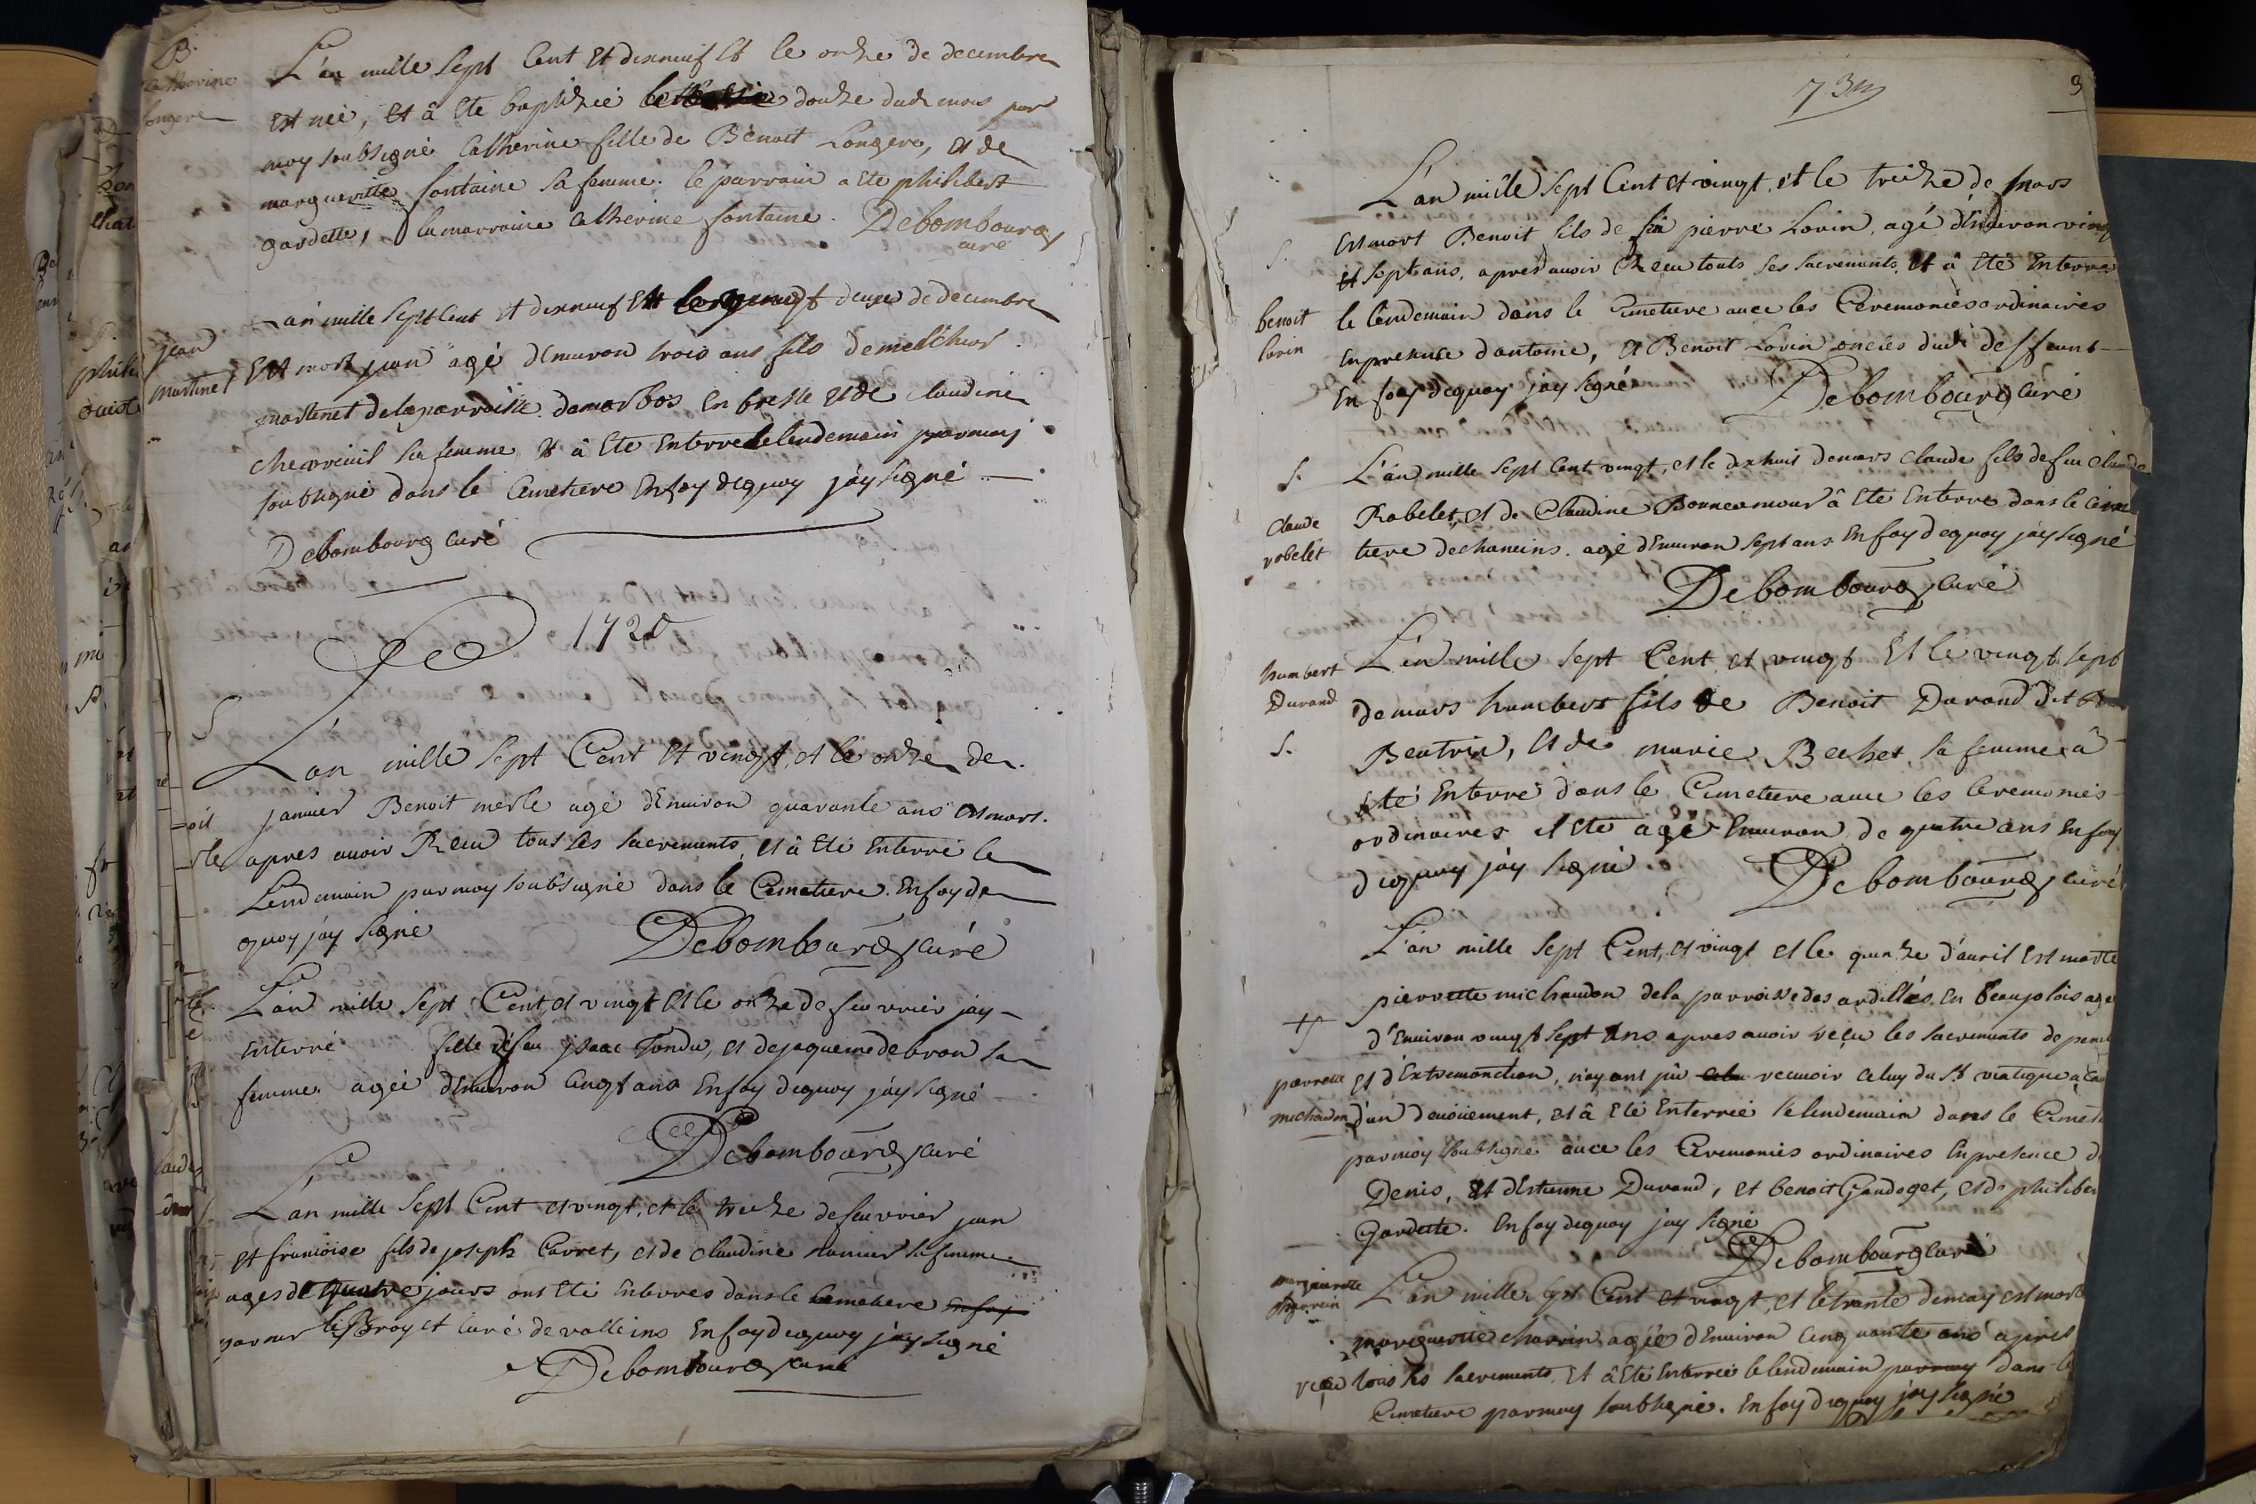 B.
Catherine
Longere
L'an mille sept Cent Et dixneuf Et le onze de decembre
est née, et â Ete baptizée le douze dudt mois par
moy soubsigné Catherine fille de Benoit Longere, et de
margueritte fontaine sa femme. le parrain a ete philibert
gardette, la marraine Catherine fontaine. Debombourg
curé
jean
martinet
L'an mille sept Cent et dixneuf Et le vingt deux de decembre
Est mort jean agé d'Environ trois ans fils de melchior
martinet de la parroisse de marbos En bresse et de Claudine
sa femme et â Ete Enterré le lendemain par moy
soubsigné dans le Cimetiere En foy dequoy j'ay signé
Debombourg Curé
1720
S
L'an mille sept Cent Et vingt, et le onze de
janvier Benoit merle agé d'Environ quarante ans est mort.
apres avoir Receu tous les sacrements, et â Eté Enterré le
Lendemain par moy soubsigné dans le Cimetiere. En foy de
quoy j'ay signé
Debombourg curé
L'an mille sept Cent, et vingt Et le onze de feuvrier j'ay
Enterré fille de feu jsaac Tondu, et de jaqueme debron sa
femme. agée d'Environ Cinq ans En foy dequoy j'ay signé
Debombourg curé
L'an mille sept Cent et vingt, et le treize de feuvrier jean
et francoise fils de joseph Carret, et de Claudine sa femme
ages de quatre jours ont Eté Enterres dans le Cimetiere En foy
par mr Curé de valleins En foy dequoy j'ay signé
Debombourg curé
73
3
L'an mille sept Cent et vingt, et le treize de mars
S.
benoit
lorin
Est mort Benoit fils de feu pierre Lorin, agé d'Environ vingt
et sept ans, apres avoir Receu touts ses sacrements, et â Eté Enterré
le lendemain dans le Cimetiere avec les Ceremonies ordinaires
En presence d'antoine, et Benoit Lorin oncles dudt deffunt
En foy dequoy j'ay signé
Debombourg curé
S.
Claude
robelet
L'an mille sept Cent vingt, et le dix huit de mars Claude fils de feu Claude
Robelet, et de Claudine Bonneamour â Eté Enterré dans le Cime
tiere de chaneins. agé d'Environ sept ans En foy dequoy j'ay signé
Debombourg curé
humbert
Durand
S.
L'an mille sept Cent et vingt Et le vingt sept
de mars humbert fils de Benoit Durand dit
Beatrix, et de marie Bechet sa femme â
Eté Enterré dans le Cimetiere avec les Ceremonies
ordinaires il Ete agé Environ de quatre ans En foy
dequoy j'ay signé
Debombourg curé
L'an mille sept Cent, et vingt et le quinze d'avril Est morte
S
pierrette
michaudon
pierrette michaudon de la parroisse des ardillés En beaujolois agée
d'Environ vingt sept ans apres avoir reçu les sacrements de penit
et d'Extremonction, n'ayant pû recevoir Celuy du St viatique à Cau
d'un devoiement, et â Eté Enterrée le lendemain dans le Cimeti
par moy soubsigné avec les Ceremonies ordinaires En presence de
Denis, et d'Estienne Durand, et benoit Gandoget, et de philiber
Gardette. En foy dequoy j'ay signé
Debombourg curé
marguerite
charvin
L'an mille sept Cent et vingt, et le trente de may est morte
marguerite charvin agée d'Environ Cinquante ans apres
reçu tous les sacrements, et â Eté Enterrée le lendemain par moy dans le
Cimetiere par moy soubsigné. En foy dequoy j'ay signé